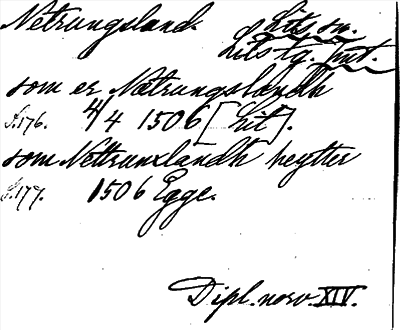 Netrungsland. Lits sn.
Lits tg. Jmt.
som er Netrungslandh
S.176. 4/4 1506 [Lit].
som Nettrunxlandh heytter
S.177. 1506 Egge.
Dipl. norv. XIV.